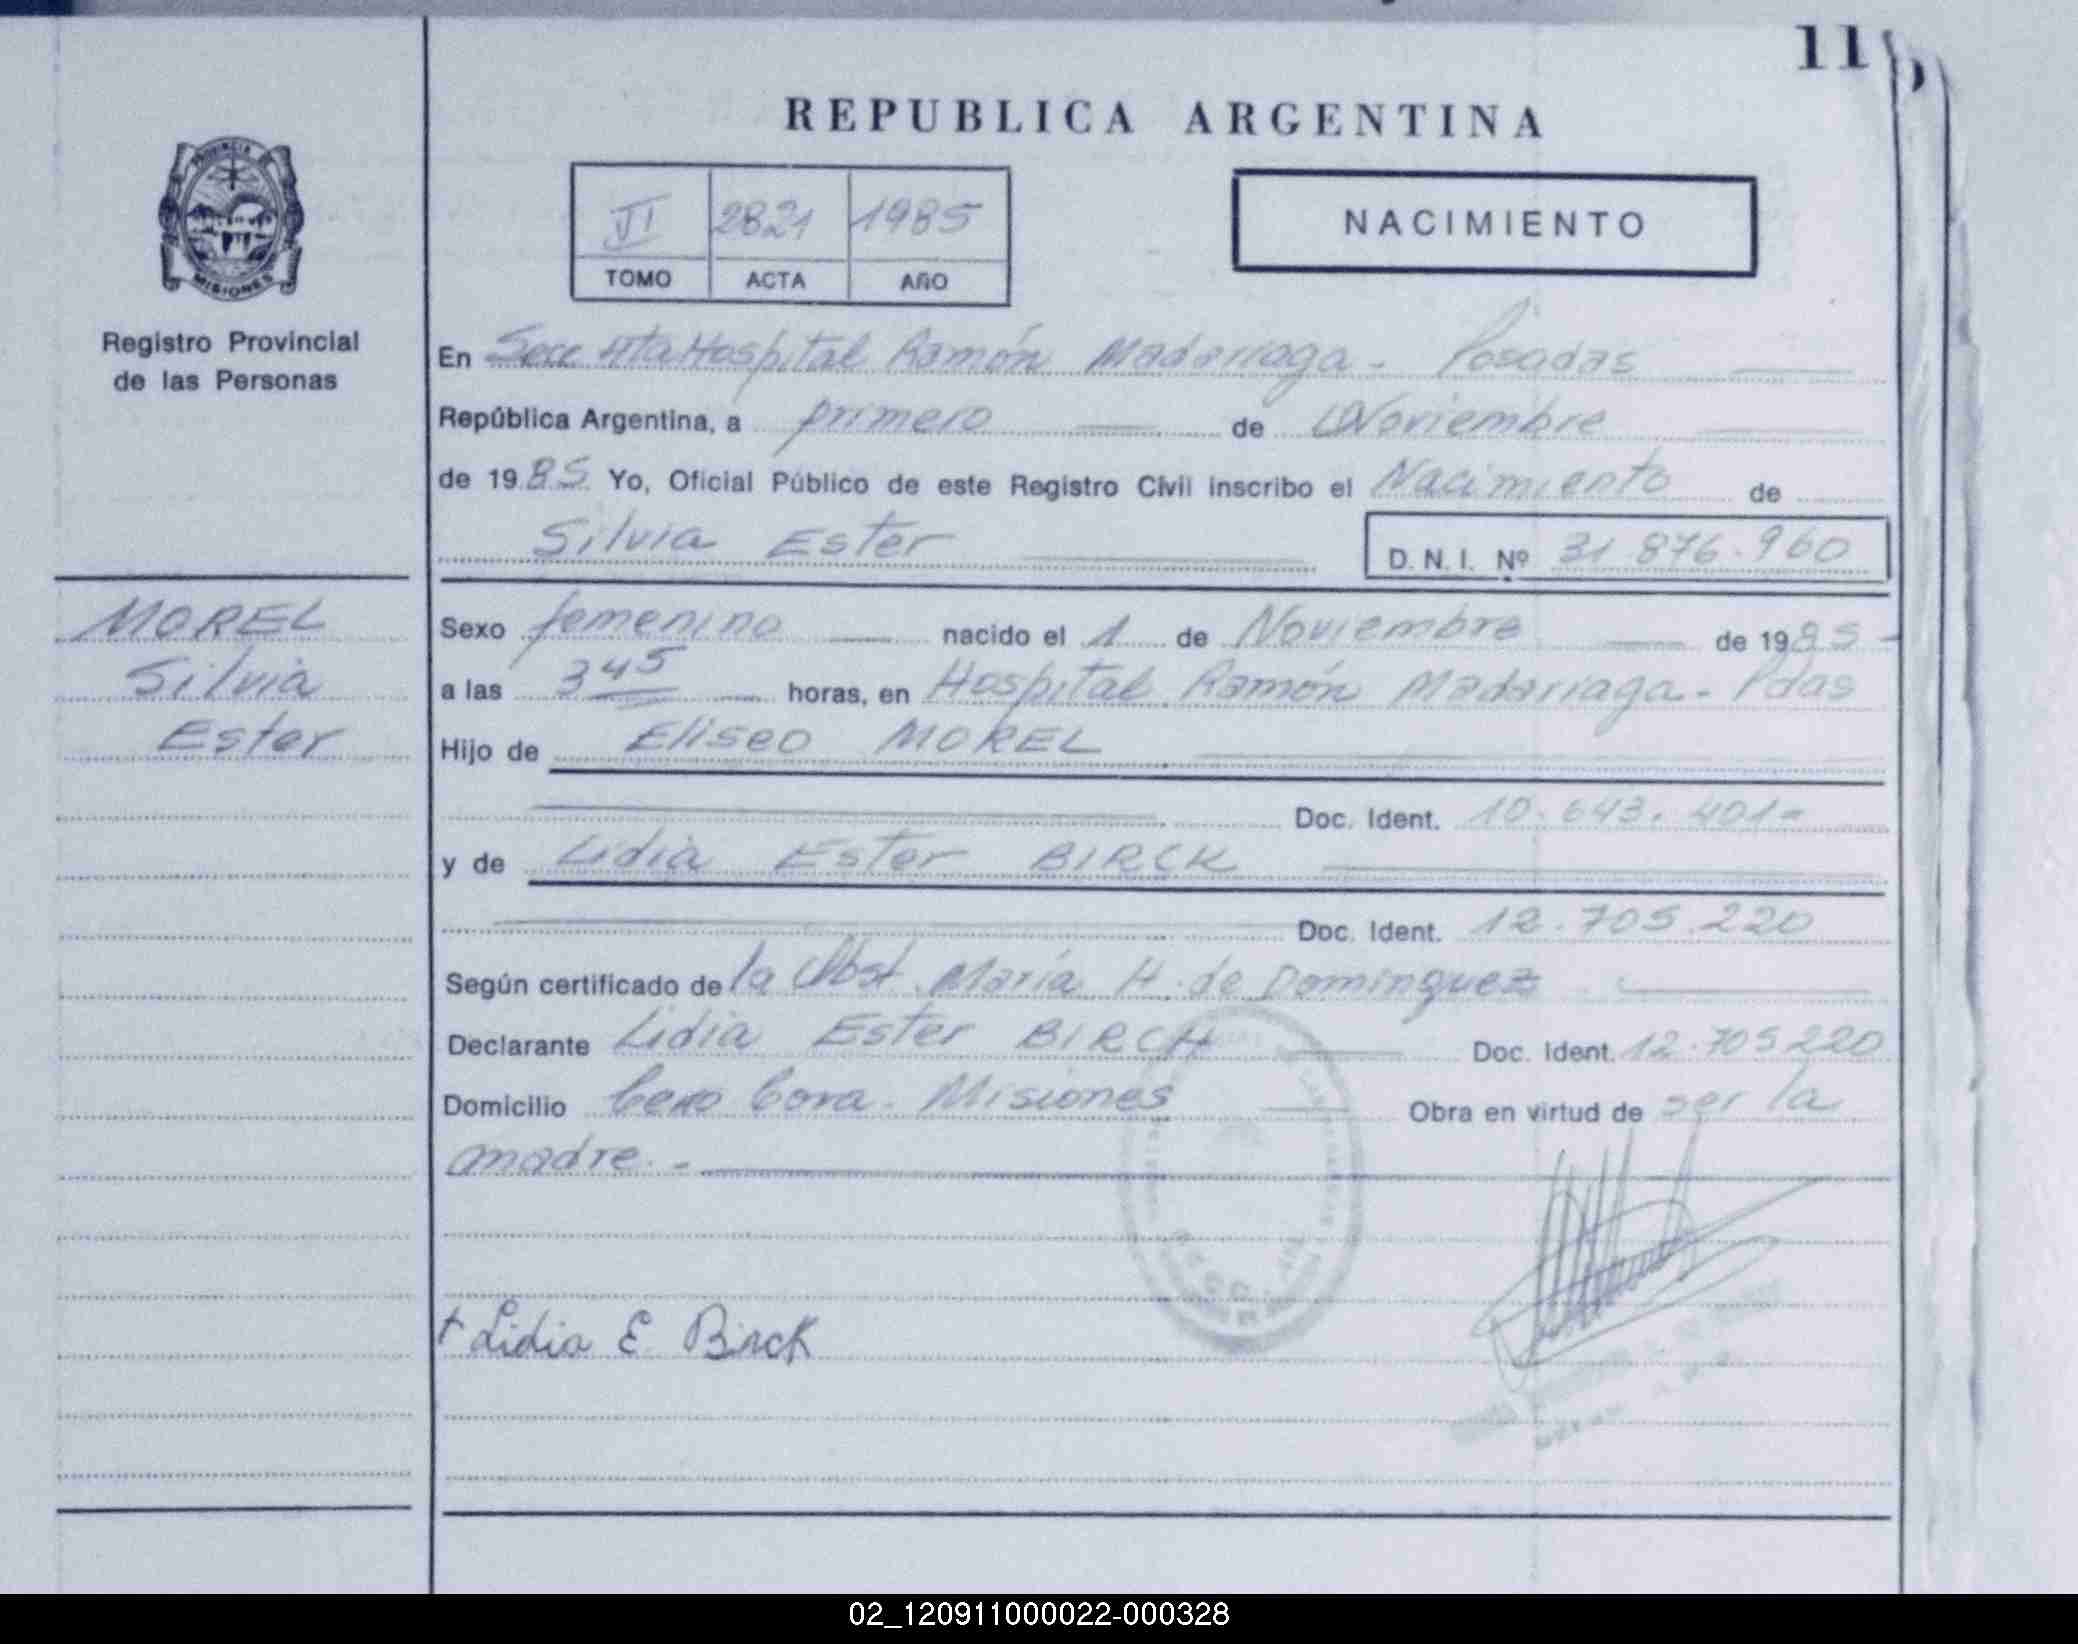 11
REPUBLICA ARGENTINA
PROVINCIA DE
MISIONES
Registro Provincial
de las Personas
VI 2821 1985
TOMO ACTA AÑO
NACIMIENTO
En Secc 4ta Hospital Ramón Madariaga - Posadas
República Argentina, a primero de Noviembre
de 1985 Yo, Oficial Público de este Registro Civil inscribo el Nacimiento de
Silvia Ester D. N. I. Nº 31.876.960
MOREL
Silvia
Ester
Sexo femenino nacido el 1 de Noviembre de 1985-
a las 3 45 horas, en Hospital Ramón Madariaga - Pdas
Hijo de Eliseo MOREL
Doc. Ident. 10.643.401-
y de Lidia Ester BIRCK
Doc. Ident. 12.705.220
Según certificado de la Obst. María H. de Dominguez
Declarante Lidia Ester BIRCH Doc. Ident. 12.705220
Domicilio Cerro Cora - Misiones Obra en virtud de ser la
madre. -
+ Lidia E. Birck
02_120911000022-000328